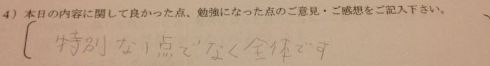 4）本日の内容に関して良かった点、勉強になった点のご意見・ご感想をご記入下さい。
特別な1点でなく全体です